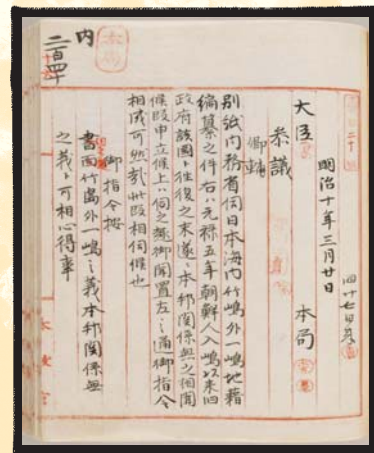 明治十年三月廿日
大臣
本局
参議
卿輔
別紙内務省伺日本海内竹嶋外一嶋地籍
編纂之件右ハ元禄五年朝鮮人入嶋以来旧
政府該國ト往復之末遂ニ本邦関係無之相聞
候段申立候上ハ伺之趣御聞置左之通御指令
相成可然哉此段相伺候也
御指令按
書面竹島外一嶋之義本邦関係無
之義ト可相心得事
内